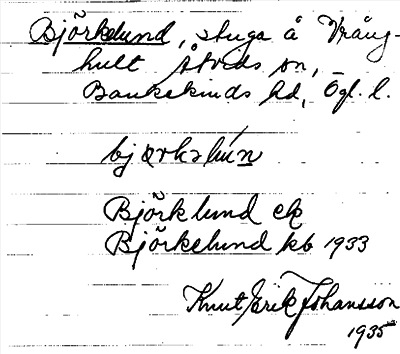 Björkelund, stuga å Vrång-
hult Åtvids sn,
Bankekinds hd, Ögl. l.
bjørkslún
Björklund ek
Björkelund kb 1933
Knut Erik Johansson
1935